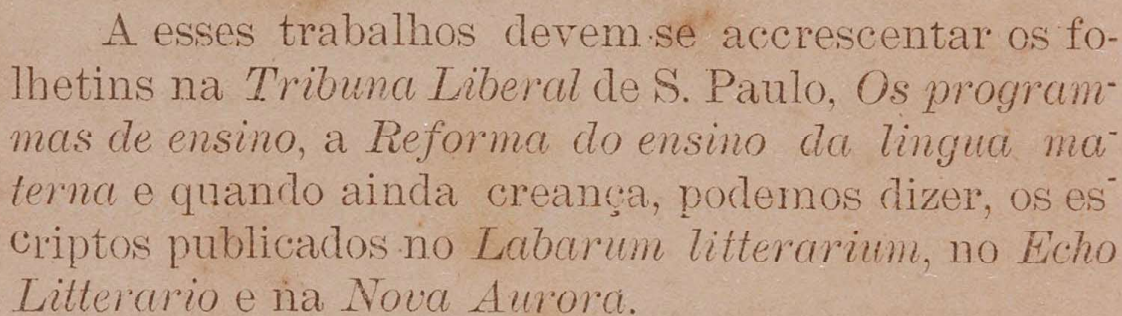 A esses trabalhos devem-se accrescentar os fo-
lhetins na Tribuna Liberal de S. Paulo, Os program-
mas de ensino, a Reforma do ensino da lingua ma-
terna e quando ainda creança, podemos dizer, os es-
criptos publicados no Labarum litterarium, no Echo
Litterario e na Nova Aurora.